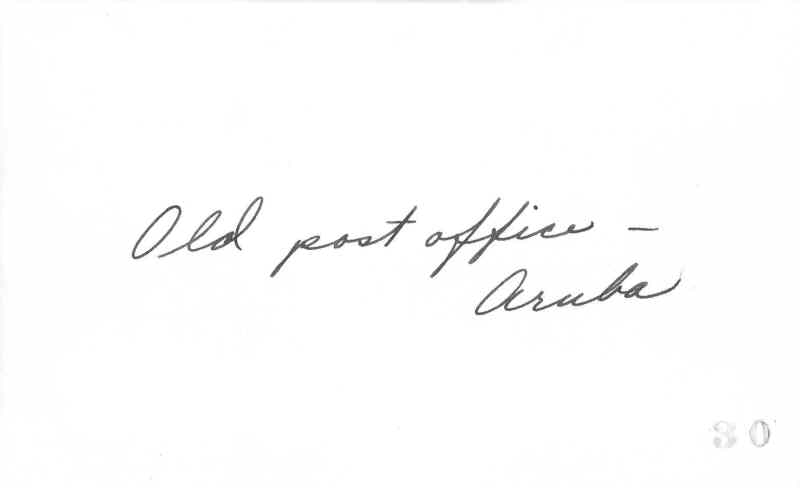 Old post office –
Aruba
30